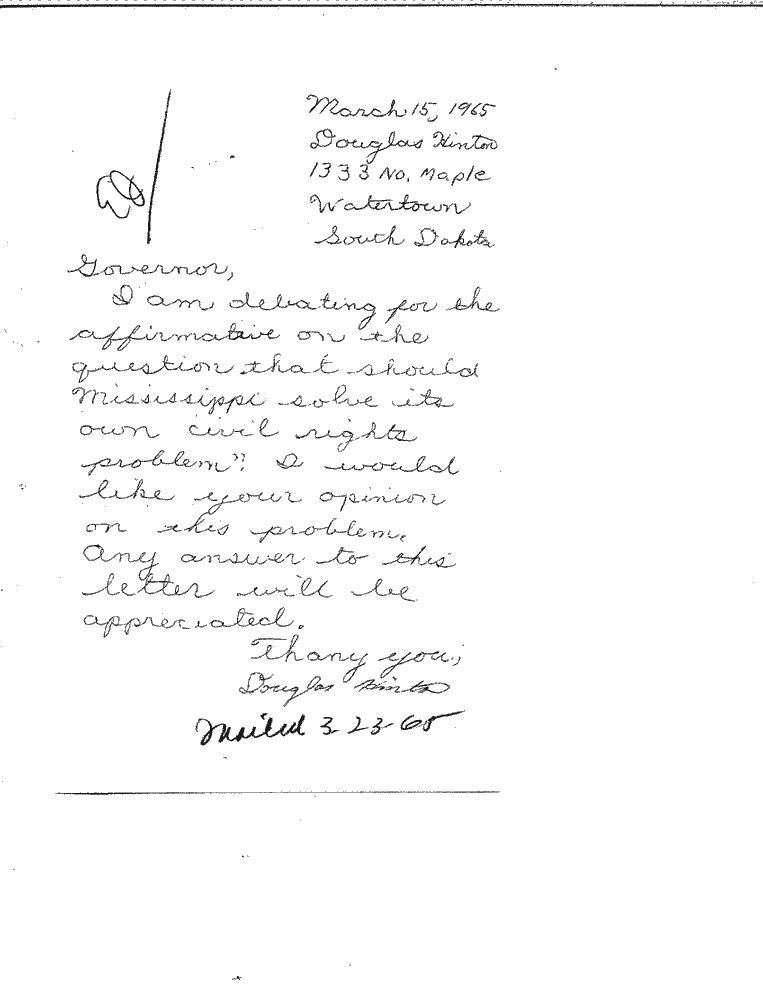 March 15, 1965
Douglas Hinton
1333 No. Maple
Watertown
South Dakota
Governor,
I am debating for the
affirmative on the
question that should
Mississippi solve its
own civil rights
problem". I would
like your opinion
on this problem.
Any answer to this
letter will be
appreciated.
Thany you,
Douglas Hinton
Mailed 3-23-65